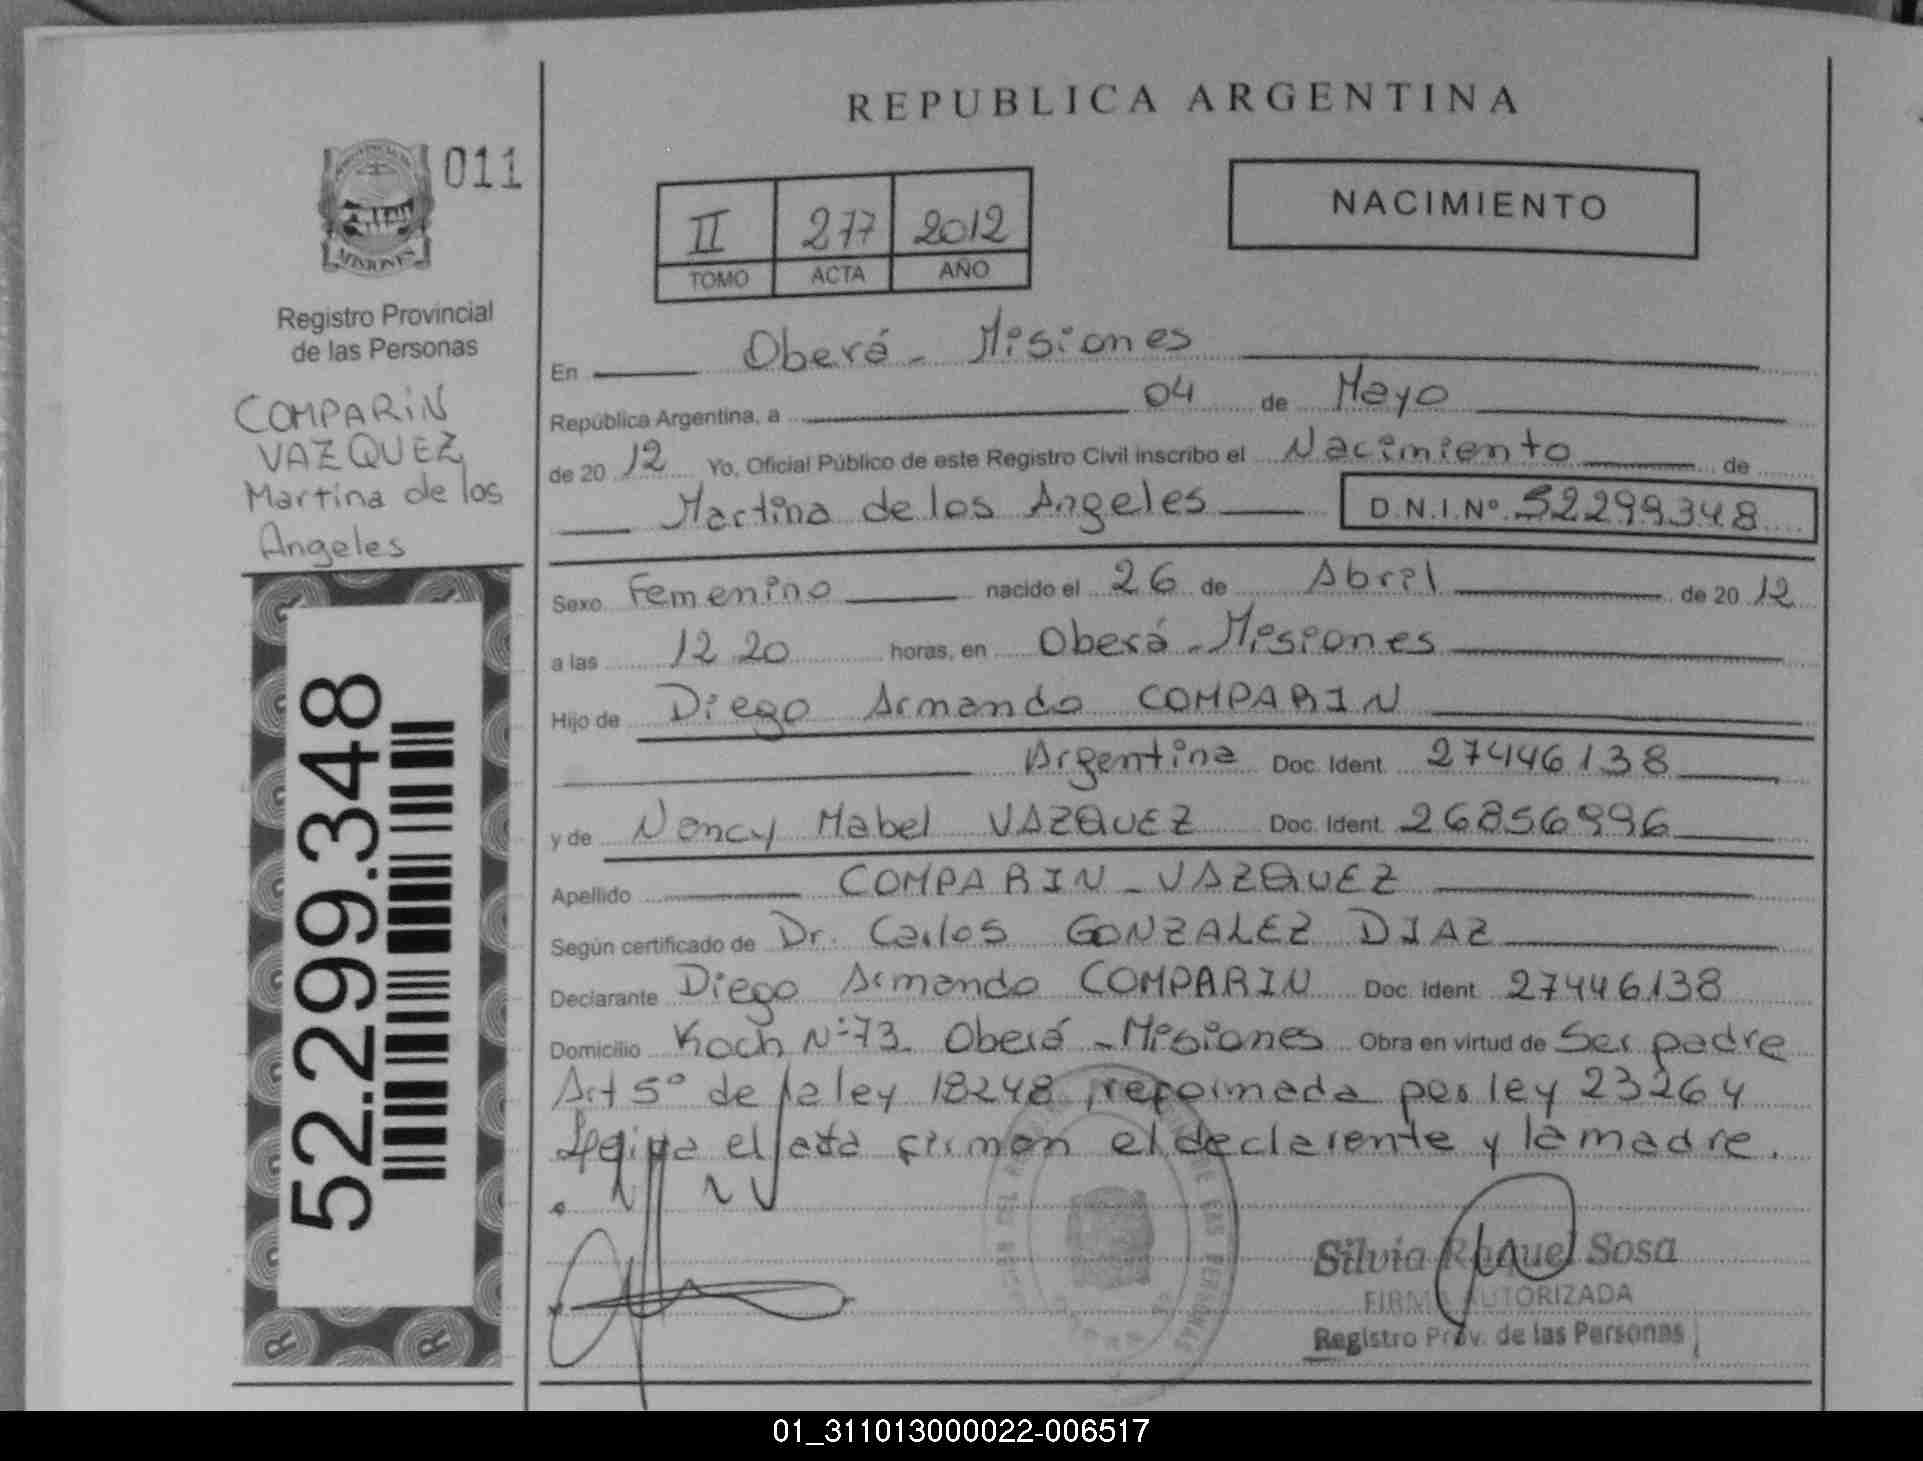 REPUBLICA ARGENTINA
011
NACIMIENTO
II 277 2012
TOMO ACTA AÑO
MISIONES
Registro Provincial
de las Personas
COMPARIN
VAZQUEZ
Martina de los
Angeles
52.299.348
En Oberá - Misiones
República Argentina, a 04 de Mayo
de 20 12 Yo, Oficial Público de este Registro Civil inscribo el Nacimiento de
Martina de los Angeles D.N.I.Nº 52299348
Sexo Femenino nacido el 26 de Abril de 20 12
a las 12 20 horas, en Oberá - Misiones
Hijo de Diego Armando COMPARIN
Argentina Doc. Ident. 27446138
y de Nancy Mabel VAZQUEZ Doc. Ident. 26856996
Apellido COMPARIN - VAZQUEZ
Según certificado de Dr. Carlos GONZALEZ DIAZ
Declarante Diego Armando COMPARIN Doc. Ident. 27446138
Domicilio Koch Nº 73. Oberá - Misiones Obra en virtud de Ser padre
Art 5º de la ley 18248, reformada por ley 23264
el acta firman el declarante y la madre.
Silvia Raquel Sosa
FIRMA AUTORIZADA
Registro Prov. de las Personas
01_311013000022-006517